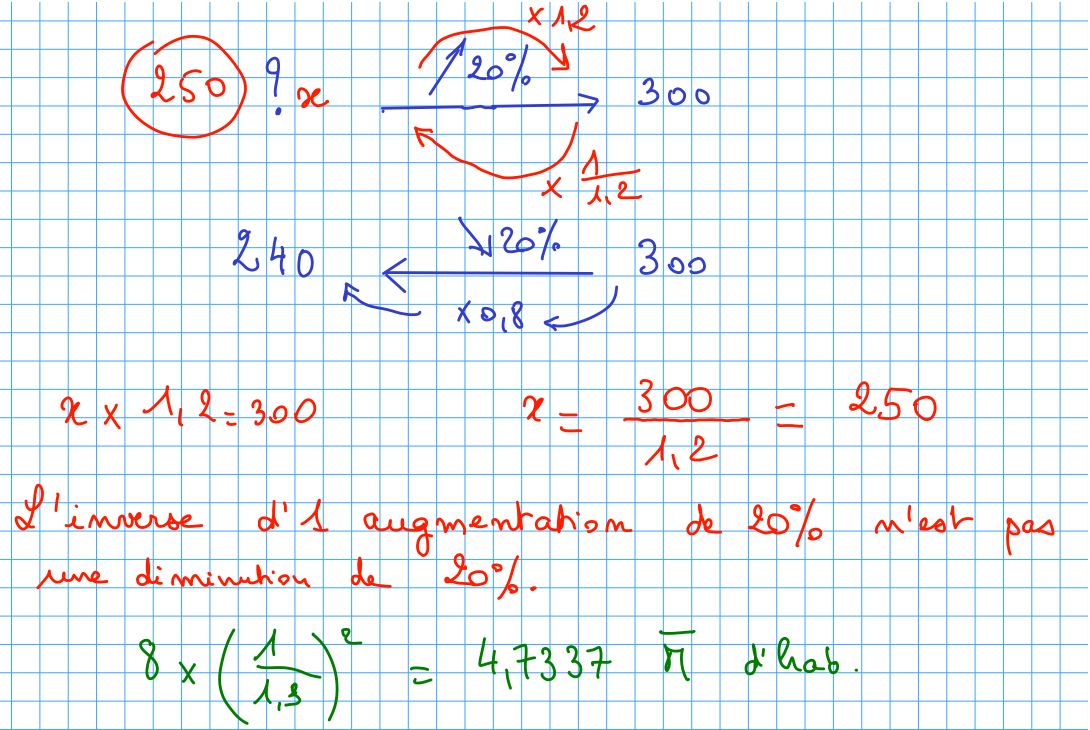 × 1,2
250 ? x ↗ 20% 300
× 1/1,2
240 ↘ 20% 300
× 0,8
x × 1,2 = 300 x = 300/1,2 = 250
L'inverse d'1 augmentation de 20% n'est pas
une diminution de 20%.
8 × (1/1,3)² = 4,7337 M̅ d'hab.